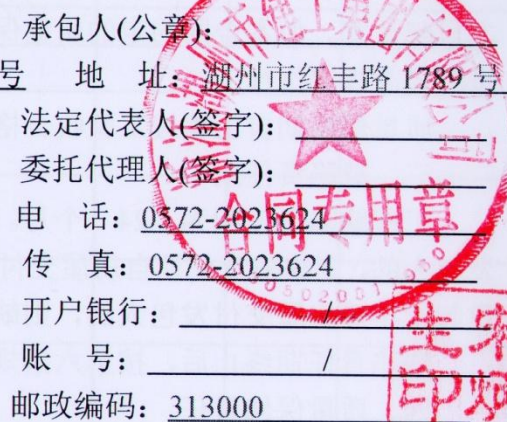 承包人(公章):
号 地 址: 湖州市红丰路 1789 号
法定代表人(签字):
委托代理人(签字):
电 话: 0572-2023624
传 真: 0572-2023624
开户银行: /
账 号: /
邮政编码: 313000
合同专用章